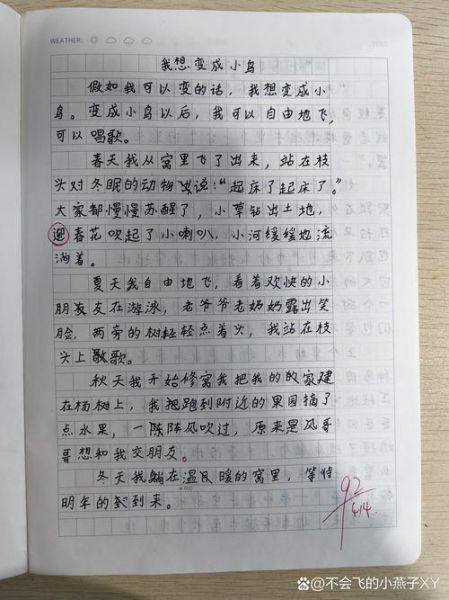 WEATHER:
我想变成小鸟
假如我可以变的话，我想变成小
鸟。变成小鸟以后，我可以自由地飞，
可以唱歌。
春天我从窝里飞了出来，站在枝
头对冬眠的动物出说："起床了起床了。"
大家都慢慢苏醒了，小草钻出土地，
迎春花吹起了小喇叭，小河缓缓地流
淌着。
夏天我自由地飞，看着欢快的小
朋友友在游泳，老爷爷老奶奶露出笑
脸，两旁的树轻轻点着头，我站在枝
头上歌歌。
秋天我开始修窝我把我的家建
在杨树上，我把跑到附近的果园摘了
点水果，一陈阵风吹过，原来是风哥
哥想和我交朋友。
冬天我躺在温暖的窝里，等待
明年的到来。
92
4.14
不会飞的小燕子XY